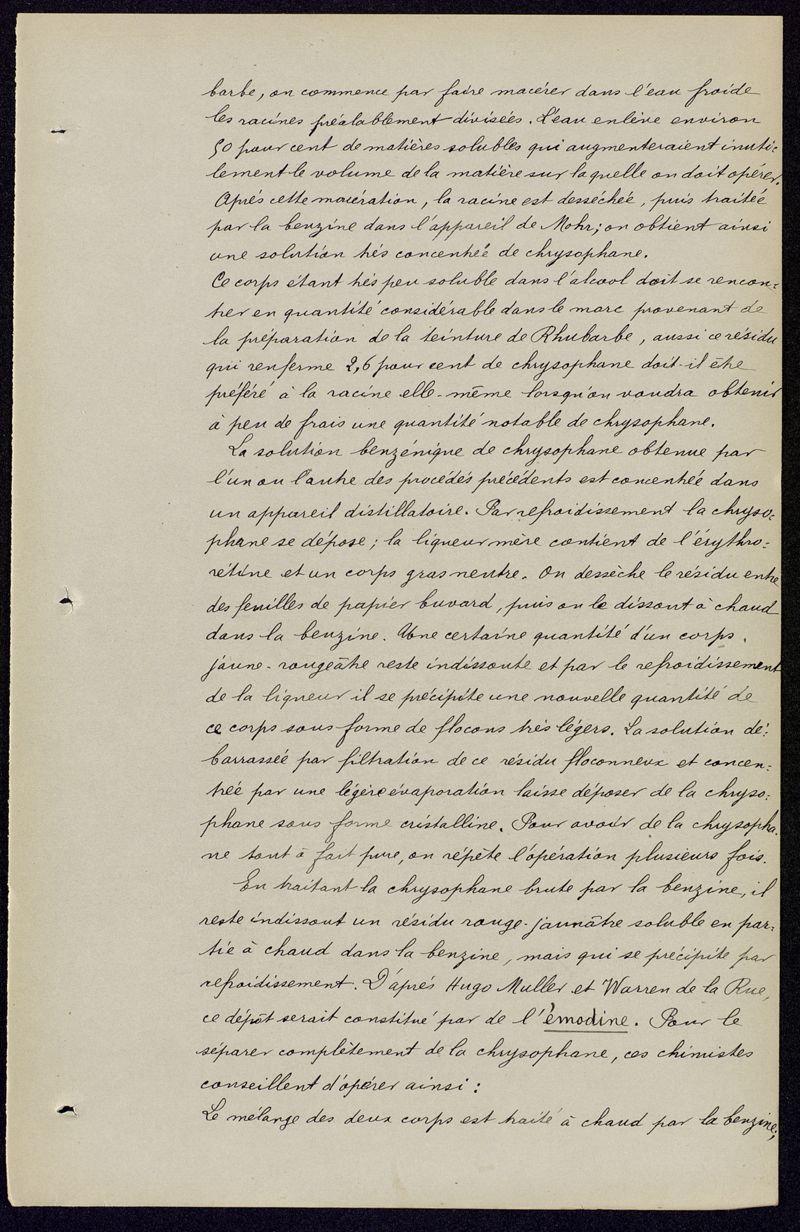 barbe, on commence par faire macérer dans l'eau froide
les racines préalablement divisées. L'eau enlève environ
50 pour cent de matières solubles qui augmenteraient inuti=
lement le volume de la matière sur laquelle on doit opérer.
Après cette macération, la racine est desséchée, puis traitée
par la benzine dans l'appareil de Mohr; on obtient ainsi
une solution très concentrée de chrysophane.
Ce corps étant très peu soluble dans l'alcool doit se rencon=
trer en quantité considérable dans le marc provenant de
la préparation de la teinture de Rhubarbe, aussi ce résidu
qui renferme 2,6 pour cent de chrysophane doit-il être
préféré à la racine elle-même lorsqu'on voudra obtenir
à peu de frais une quantité notable de chrysophane.
La solution benzénique de chrysophane obtenue par
l'un ou l'autre des procédés précédents est concentrée dans
un appareil distillatoire. Par refroidissement la chryso=
phane se dépose; la liqueur mère contient de l'érythro=
rétine et un corps gras neutre. On dessèche le résidu entre
des feuilles de papier buvard, puis on le dissout à chaud
dans la benzine. Une certaine quantité d'un corps
jaune-rougeâtre reste indissoute et par le refroidissement
de la liqueur il se précipite une nouvelle quantité de
ce corps sous forme de flocons très légers. La solution dé=
barrassée par filtration de ce résidu floconneux et concen=
trée par une légère évaporation laisse déposer de la chryso=
phane sous forme cristalline. Pour avoir de la chrysopha-
ne tout à fait pure, on répète l'opération plusieurs fois.
En traitant la chrysophane brute par la benzine, il
reste indissout un résidu rouge-jaunâtre soluble en par=
tie à chaud dans la benzine, mais qui se précipite par
refroidissement. D'après Hugo Muller et Warren de la Rue,
ce dépôt serait constitué par de l'émodine. Pour le
séparer complètement de la chrysophane, ces chimistes
conseillent d'opérer ainsi:
Le mélange des deux corps est traité à chaud par la benzine;